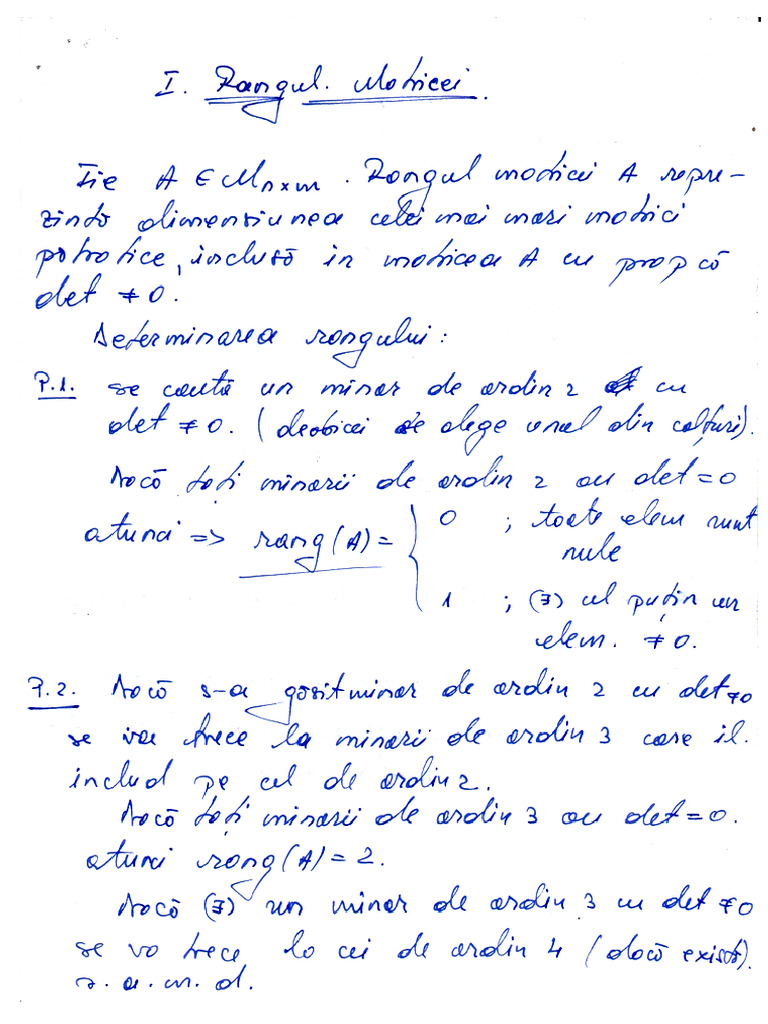 I. Rangul Matricei.
Fie A ∈ Mn×m. Rangul matricei A repre-
zintă dimensiunea celei mai mari matrici
pătratice, inclusă în matricea A cu prop că
det ≠ 0.
Determinarea rangului:
P.1. se caută un minor de ordin 2 cu
det ≠ 0. (deobicei se alege unul din colțuri).
Dacă toți minorii de ordin 2 au det = 0
atunci => rang(A) = { 0 ; toate elem sunt
nule
1 ; (∃) cel puțin un
elem. ≠ 0.
P.2. Dacă s-a găsit minor de ordin 2 cu det ≠ 0
se va trece la minorii de ordin 3 care îl
includ pe cel de ordin 2.
Dacă toți minorii de ordin 3 au det = 0.
atunci rang(A) = 2.
Dacă (∃) un minor de ordin 3 cu det ≠ 0
se va trece la cei de ordin 4 (dacă există).
ș.a.m.d.